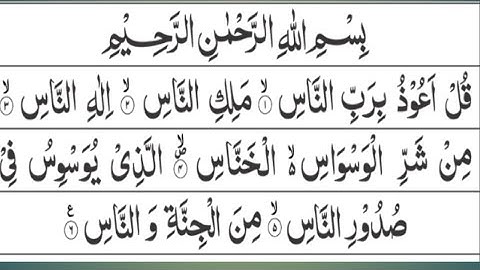 بِسْمِ اللهِ الرَّحْمٰنِ الرَّحِيْمِ
قُلْ اَعُوْذُ بِرَبِّ النَّاسِ ۙ﴿۱﴾ مَلِكِ النَّاسِ ۙ﴿۲﴾ اِلٰهِ النَّاسِ ۙ﴿۳﴾
مِنْ شَرِّ الْوَسْوَاسِ ۙ۬ الْخَنَّاسِ ۪ۙ﴿۴﴾ الَّذِیْ یُوَسْوِسُ فِیْ
صُدُوْرِ النَّاسِ ۙ﴿۵﴾ مِنَ الْجِنَّةِ وَ النَّاسِ ﴿۶﴾ ع